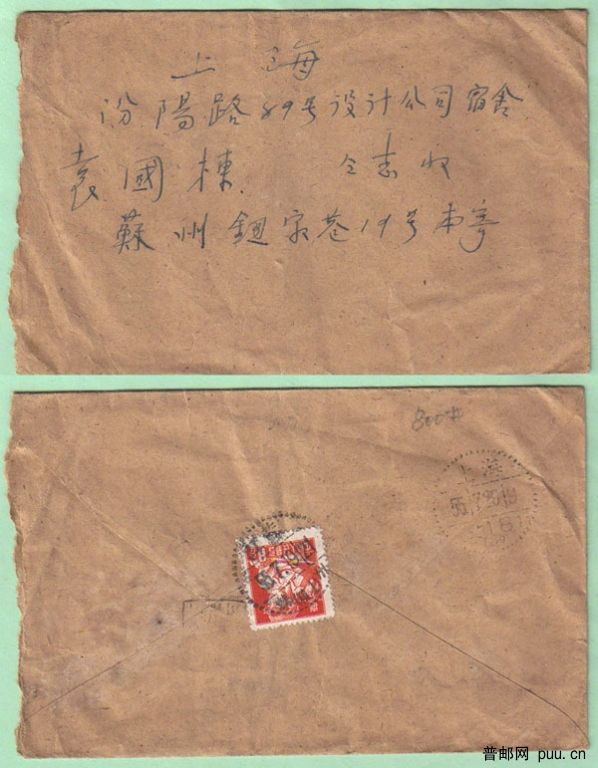 上海
汾陽路89号设计公司宿舍
袁國棟 仝志收
蘇州鈕家巷19号本寄
800#
上海
55.7.25.19
普邮网 puu.cn